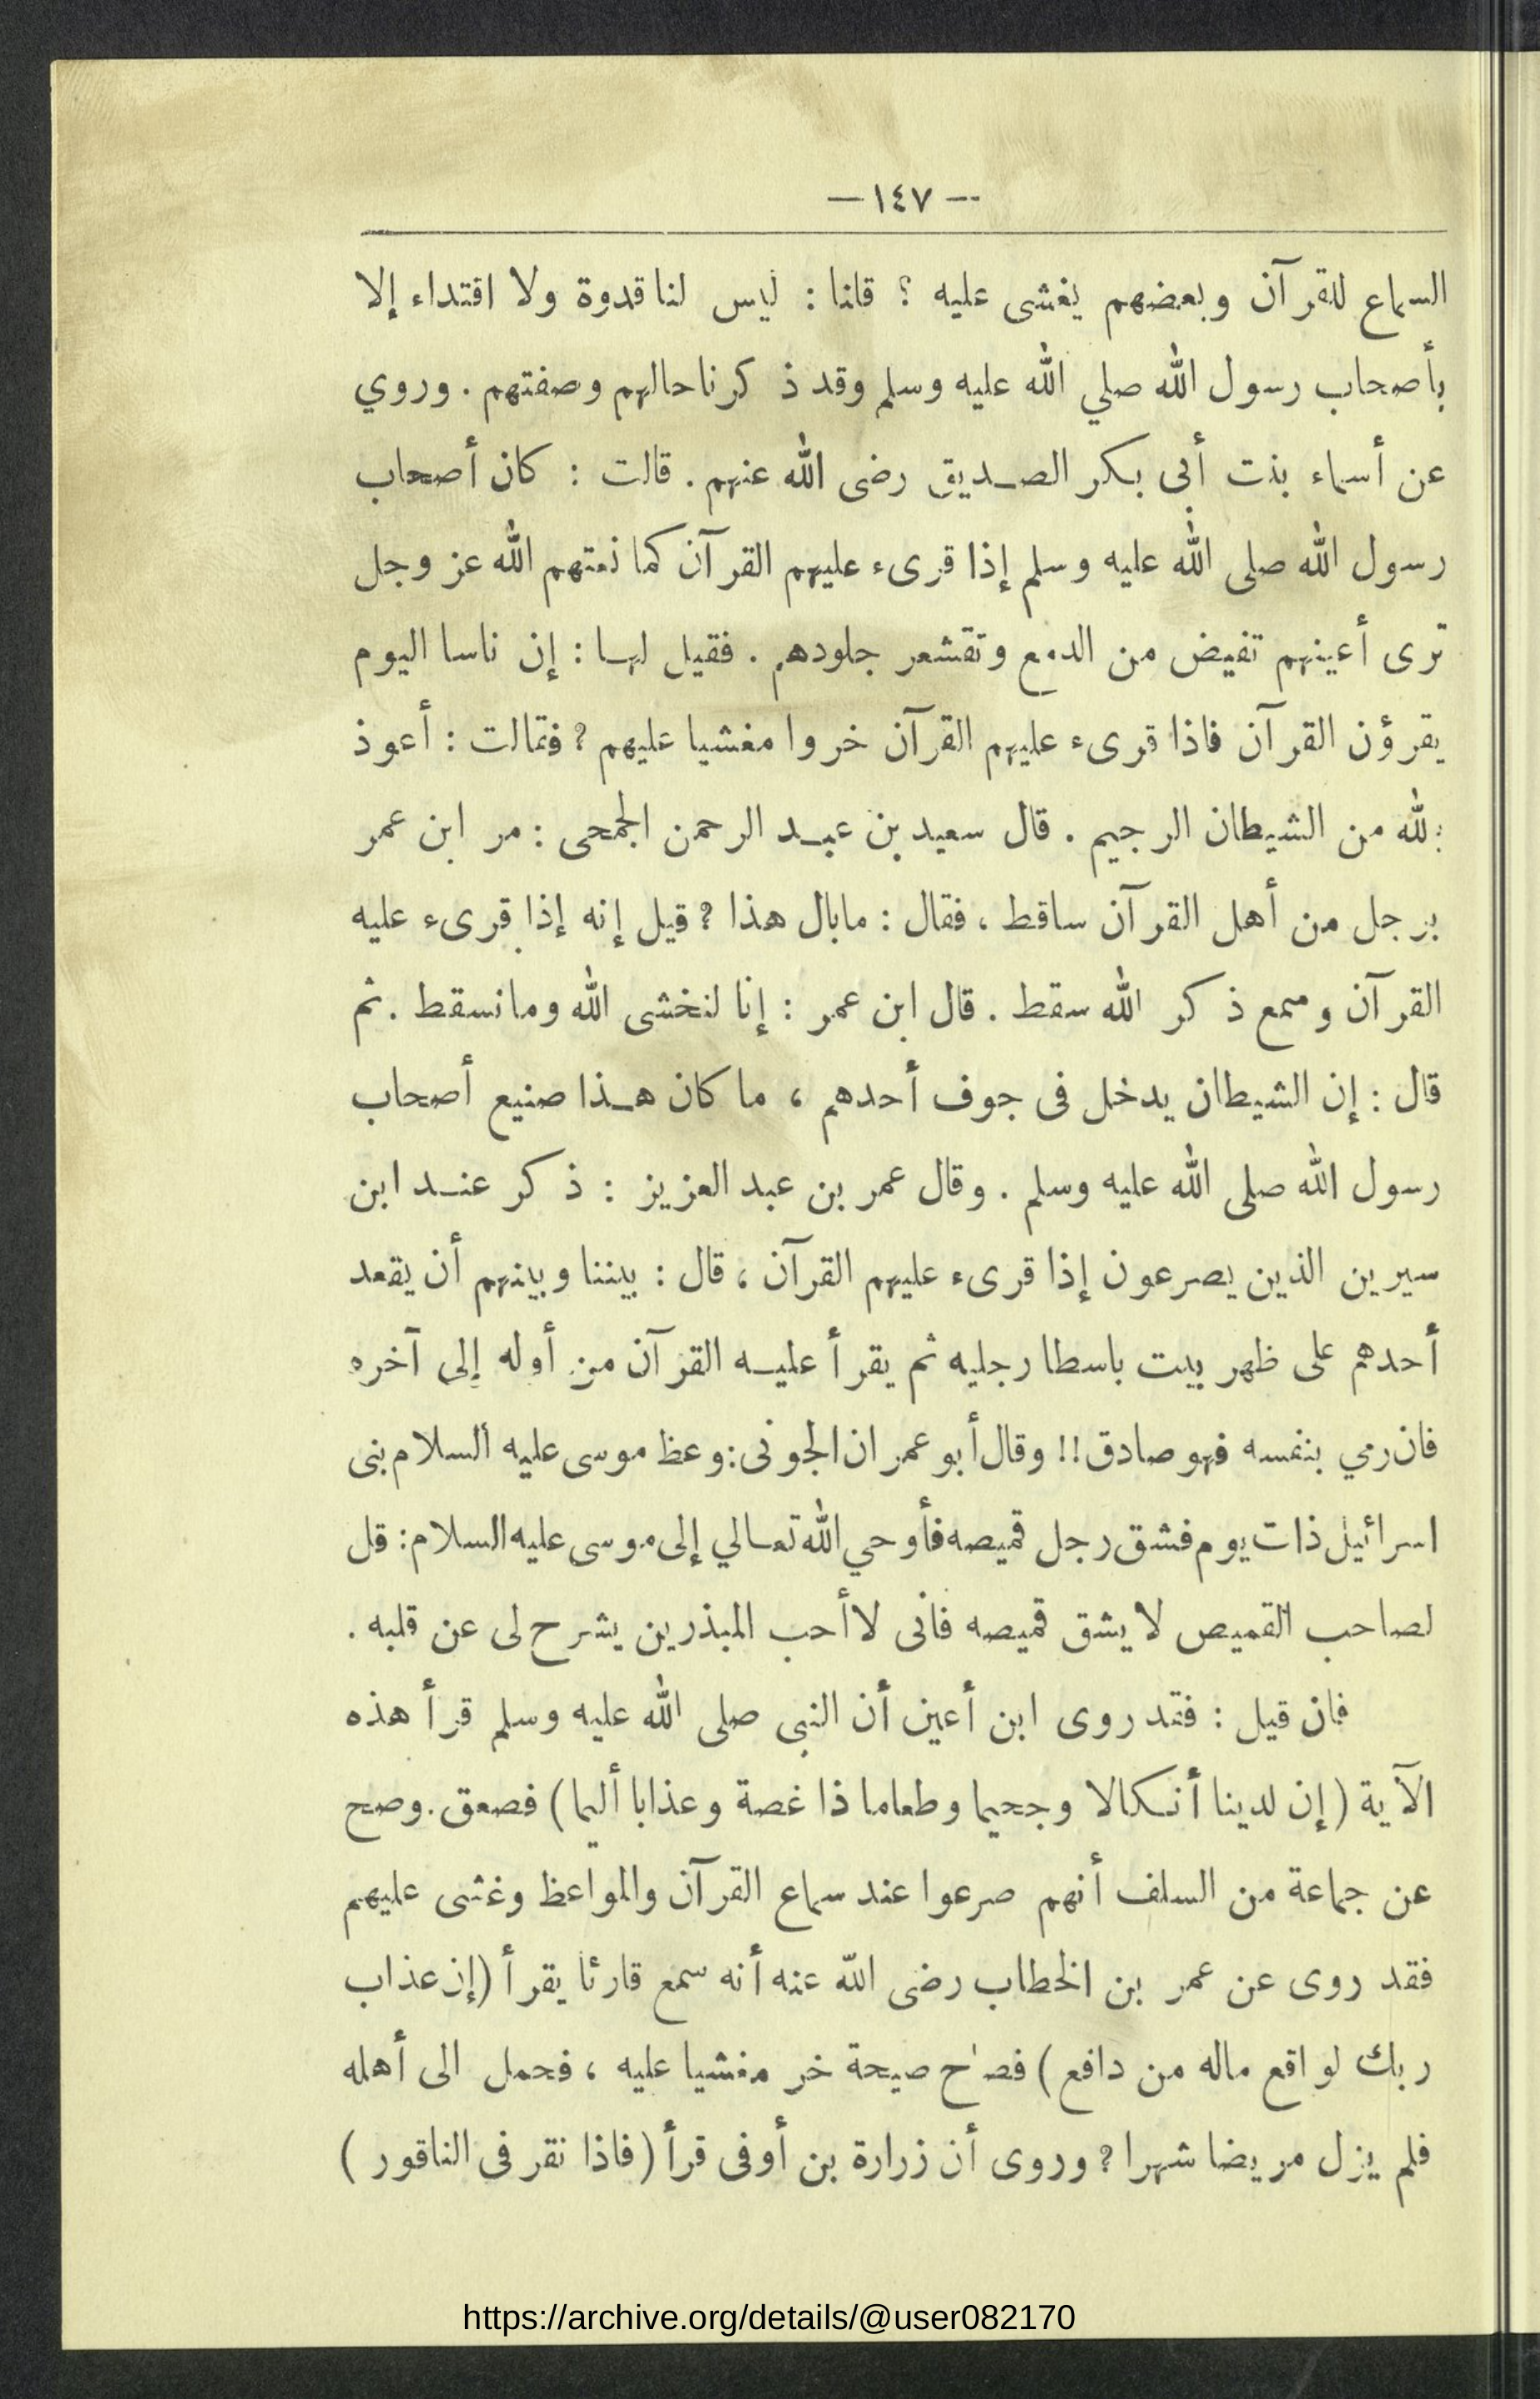 — ١٤٧ —
السماع للقرآن وبعضهم يغشى عليه ؟ قلنا : ليس لنا قدوة ولا اقتداء إلا
بأصحاب رسول الله صلي الله عليه وسلم وقد ذكرنا حالهم وصفتهم . وروي
عن أسماء بنت أبى بكر الصديق رضى الله عنهم . قالت : كان أصحاب
رسول الله صلى الله عليه وسلم إذا قرىء عليهم القرآن كما نعتهم الله عز وجل
ترى أعينهم تفيض من الدمع وتقشعر جلودهم . فقيل لها : إن ناسا اليوم
يقرؤن القرآن فاذا قرىء عليهم القرآن خروا مغشيا عليهم ? فقالت : أعوذ
بالله من الشيطان الرجيم . قال سعيد بن عبد الرحمن الجمحى : مر ابن عمر
برجل من أهل القرآن ساقط ، فقال : مابال هذا ? قيل إنه إذا قرىء عليه
القرآن وسمع ذكر الله سقط . قال ابن عمر : إنا لنخشى الله وما نسقط . ثم
قال : إن الشيطان يدخل فى جوف أحدهم ، ما كان هذا صنيع أصحاب
رسول الله صلى الله عليه وسلم . وقال عمر بن عبد العزيز : ذكر عند ابن
سيرين الذين يصرعون إذا قرىء عليهم القرآن ، قال : بيننا وبينهم أن يقعد
أحدهم على ظهر بيت باسطا رجليه ثم يقرأ عليه القرآن من أوله إلى آخره
فان رمي بنفسه فهو صادق !! وقال أبو عمران الجونى : وعظ موسى عليه السلام بنى
اسرائيل ذات يوم فشق رجل قميصه فأوحي الله تعالي إلى موسى عليه السلام : قل
لصاحب القميص لا يشق قميصه فانى لا أحب المبذرين يشرح لى عن قلبه .
فان قيل : فقد روى ابن أعين أن النبى صلى الله عليه وسلم قرأ هذه
الآية ( إن لدينا أنكالا وجحيما وطعاما ذا غصة وعذابا أليما ) فصعق . وصح
عن جماعة من السلف أنهم صرعوا عند سماع القرآن والمواعظ وغشى عليهم
فقد روى عن عمر بن الخطاب رضى الله عنه أنه سمع قارئا يقرأ ( إن عذاب
ربك لواقع ماله من دافع ) فصاح صيحة خر مغشيا عليه ، فحمل الى أهله
فلم يزل مريضا شهرا ? وروى أن زرارة بن أوفى قرأ ( فاذا نقر فى الناقور )
https://archive.org/details/@user082170